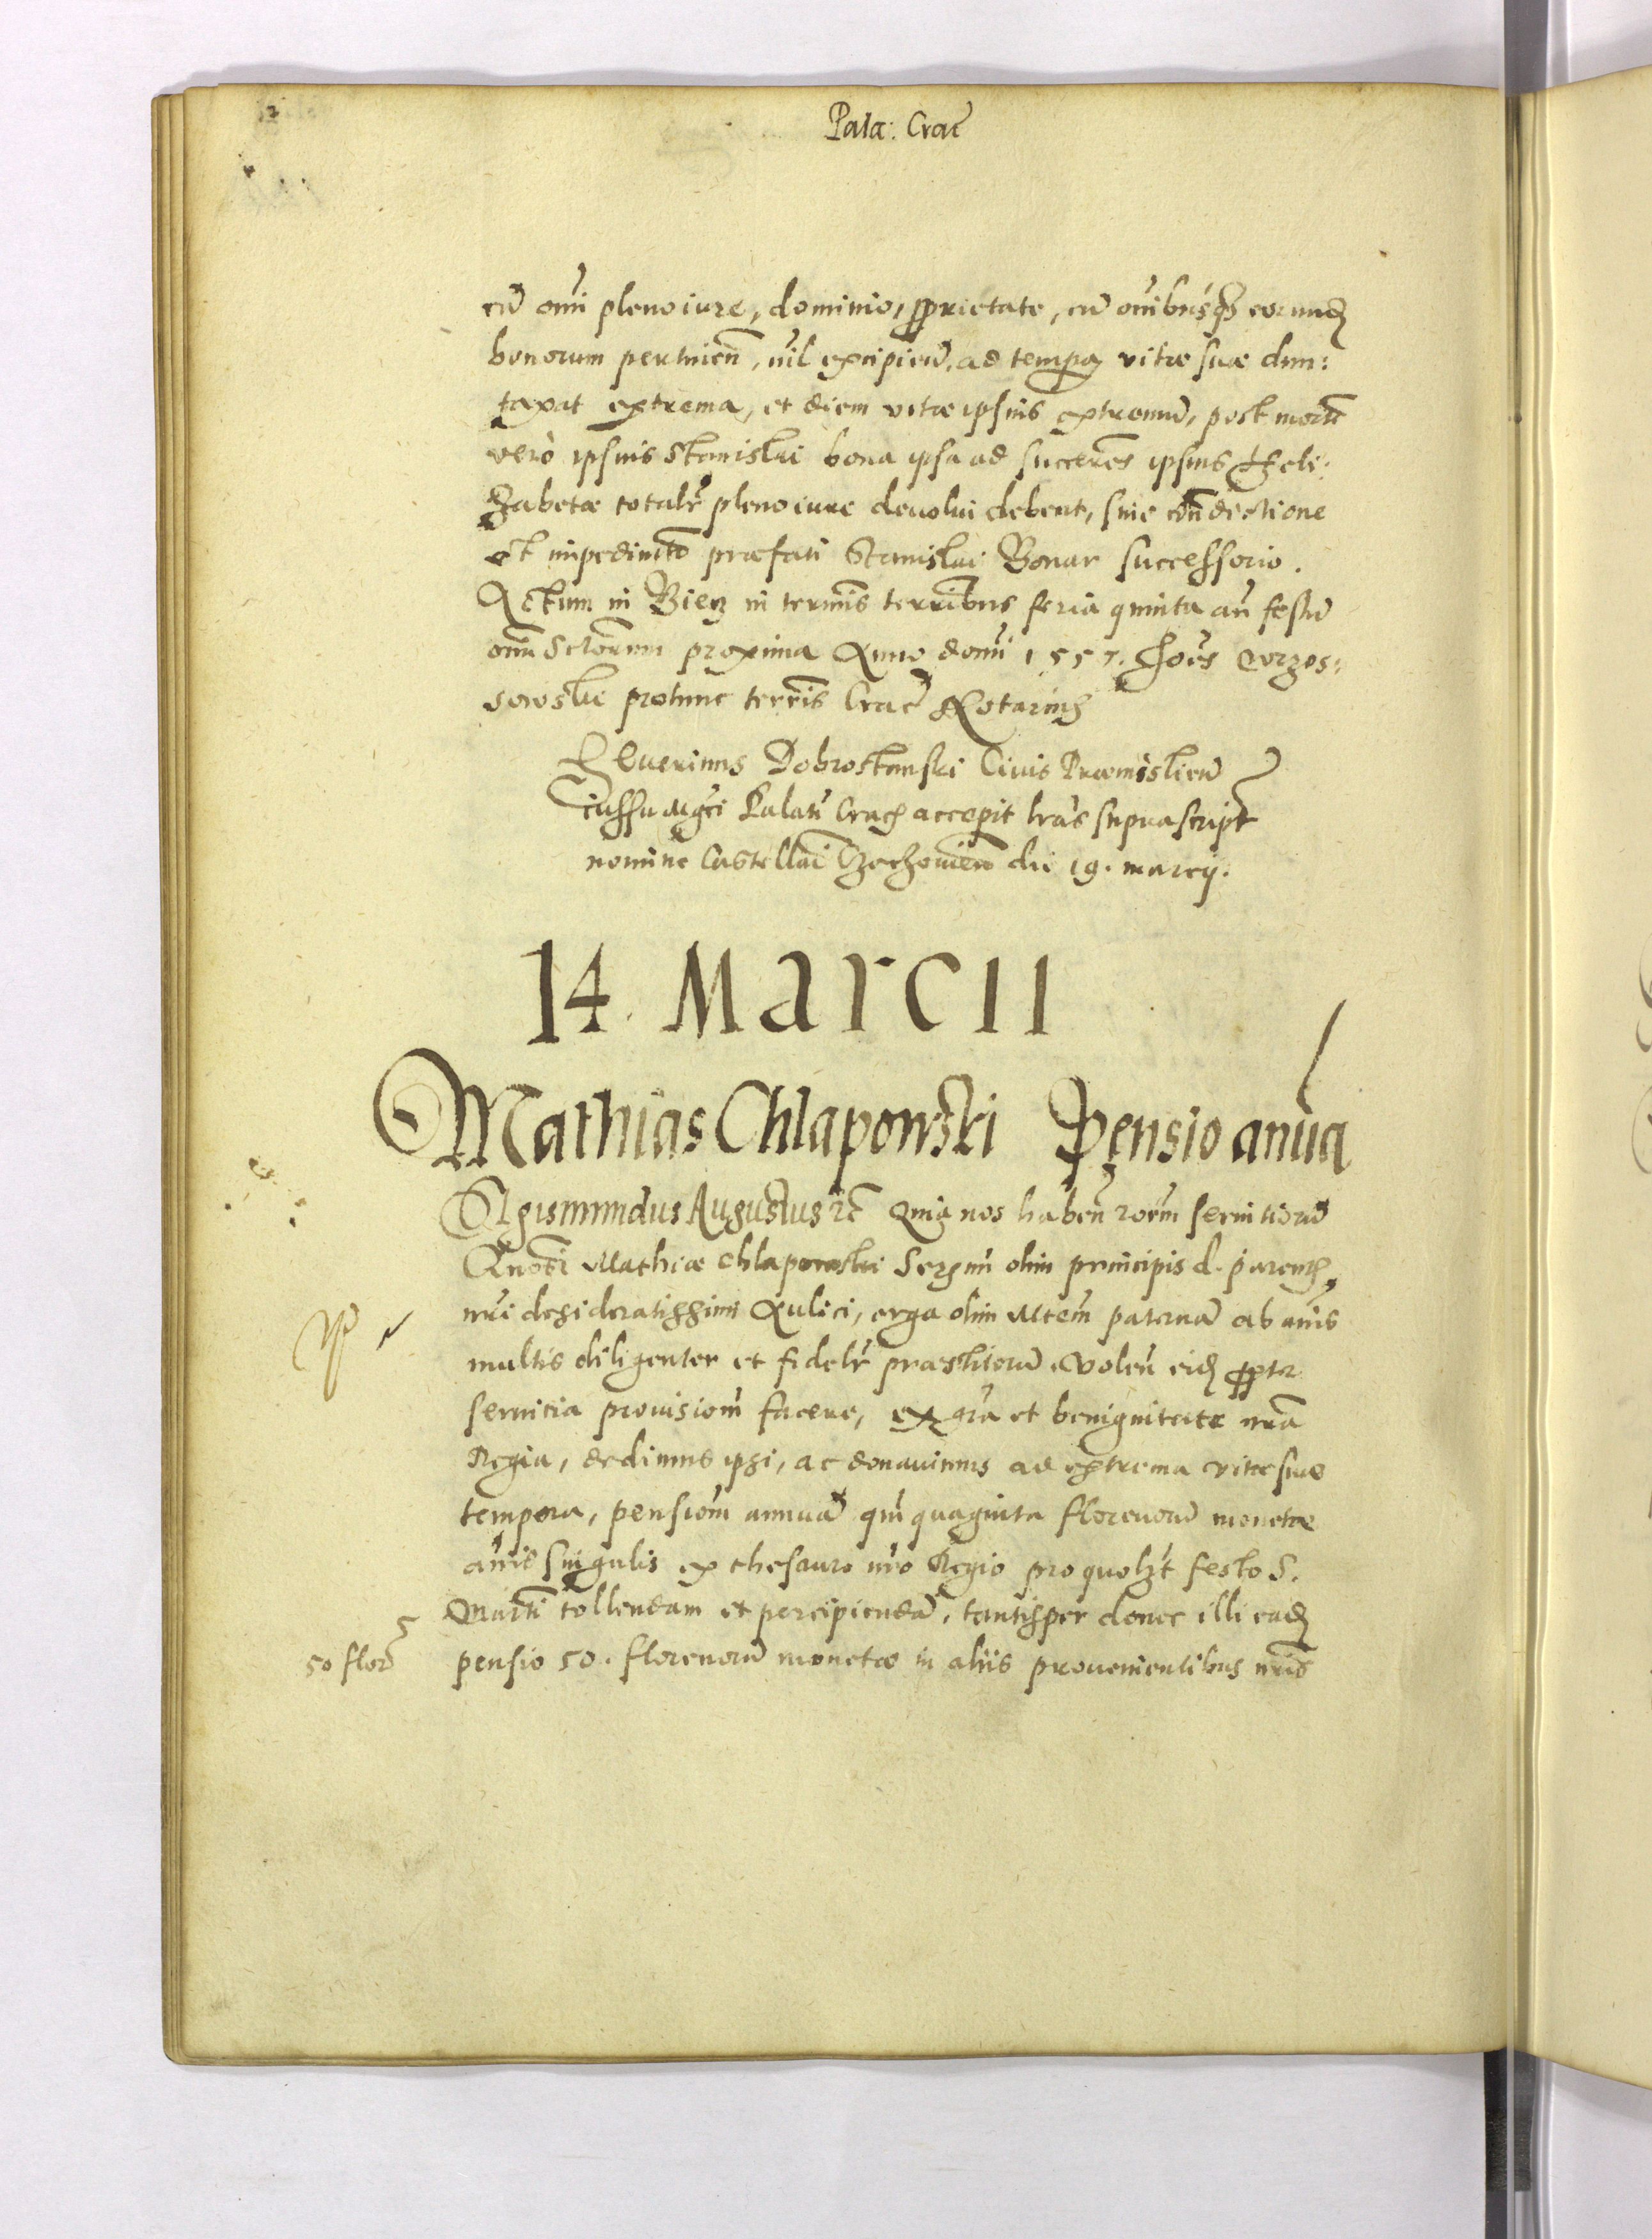 Pala: Crac̄
cū om̄i pleno iure, dominio, ꝓprietate, cū om̄ibusq̄ȝ eorundē
bonorum pertinen̄, nil excipien̄, ad tempora vitæ suæ dun:
taxat extrema, et diem vitæ ipsius extremū, post mortē
verò ipsius Stanislai bona ipsa ad succeres̄ ipsius Heli:
zabetæ totalr̄ pleno iure deuolui debent, sine contrādictione
et impedimto præfati Stanislai Bonar successorio.
Actum in Biecz in termīs terrībus feria quinta an̄ festū
om̄ Sctōrum proxima Anno domī 1557. Joēs
sowski protunc terrīs Crac̄ Notarius
Seuerinus Dobrostanski Ciuis Præmislien̄
iussu Mgc̄i Palatī Crac̄ accepit lrās suprascript
nomine Castellāi Czechouien̄ die 19. marcij.
14. Marcii
Mathias Chlapowski Pensio an̄ua
Sigismundus Augustus rc̄ Quia nos haben̄ rōem seruitiorū
Gnōsi Mathiæ Chlapowski Serᵐⁱ olim principis d. parentis
nr̄i desideratissimi Aulici, erga olim Mtem̄ paternā ab an̄is
multis diligenter et fidelr̄ præstitorū. Volen̄ eidē ꝓpter
seruitia prouisiom̄ facere, ex grā et benignitate nr̄a
Regia, dedimus ipsi, ac donauimus ad extrema vitæ suæ
tempora, pensiom̄ annuā qui͞nquaginta florenorū monetæ
an̄is singulis ex thesauro nr̄o Regio pro quolȝt festo S.
Marti͞ tollendam et percipiendā, tantisper donec illi eadē
50 flor̄ pensio 50. florenorū monetæ in aliis prouenientibus nr̄is